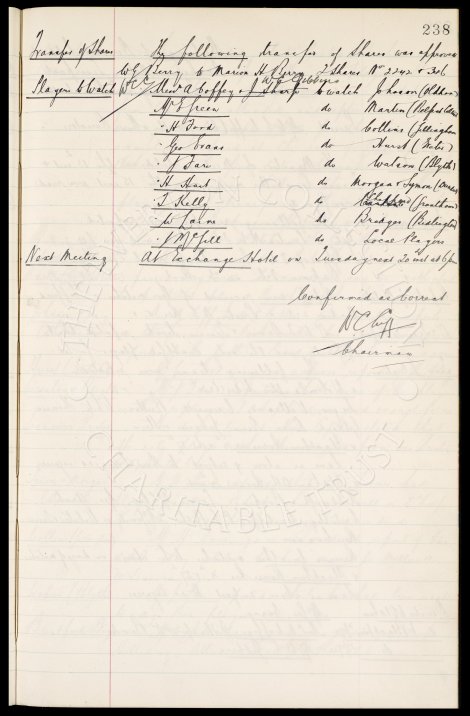 238
Transfer of Shares The following transfer of Shares was approved
W G Perry to Marion H Perry 2 Shares No 2242 &
Players to Watch Messrs A Coffey & J Sharp to watch Johnson (Oldham)
Mr E Green do Martin (Belfast Celtic)
" H Ford do Collins (Gillingham)
" Geo Evans do Hurst (
" J Fare do Watson (Blyth)
" H Hart do Morgan & Symon (Dundee)
" T Kelly do (Grantham)
" W Caine do Bridges (Bedlington)
" J McGill do Local Players
Next Meeting At Exchange Hotel on Tuesday next 20 inst at 6 pm
Confirmed as Correct
W.C. Cuff
Chairman
THE
CHARITABLE TRUST